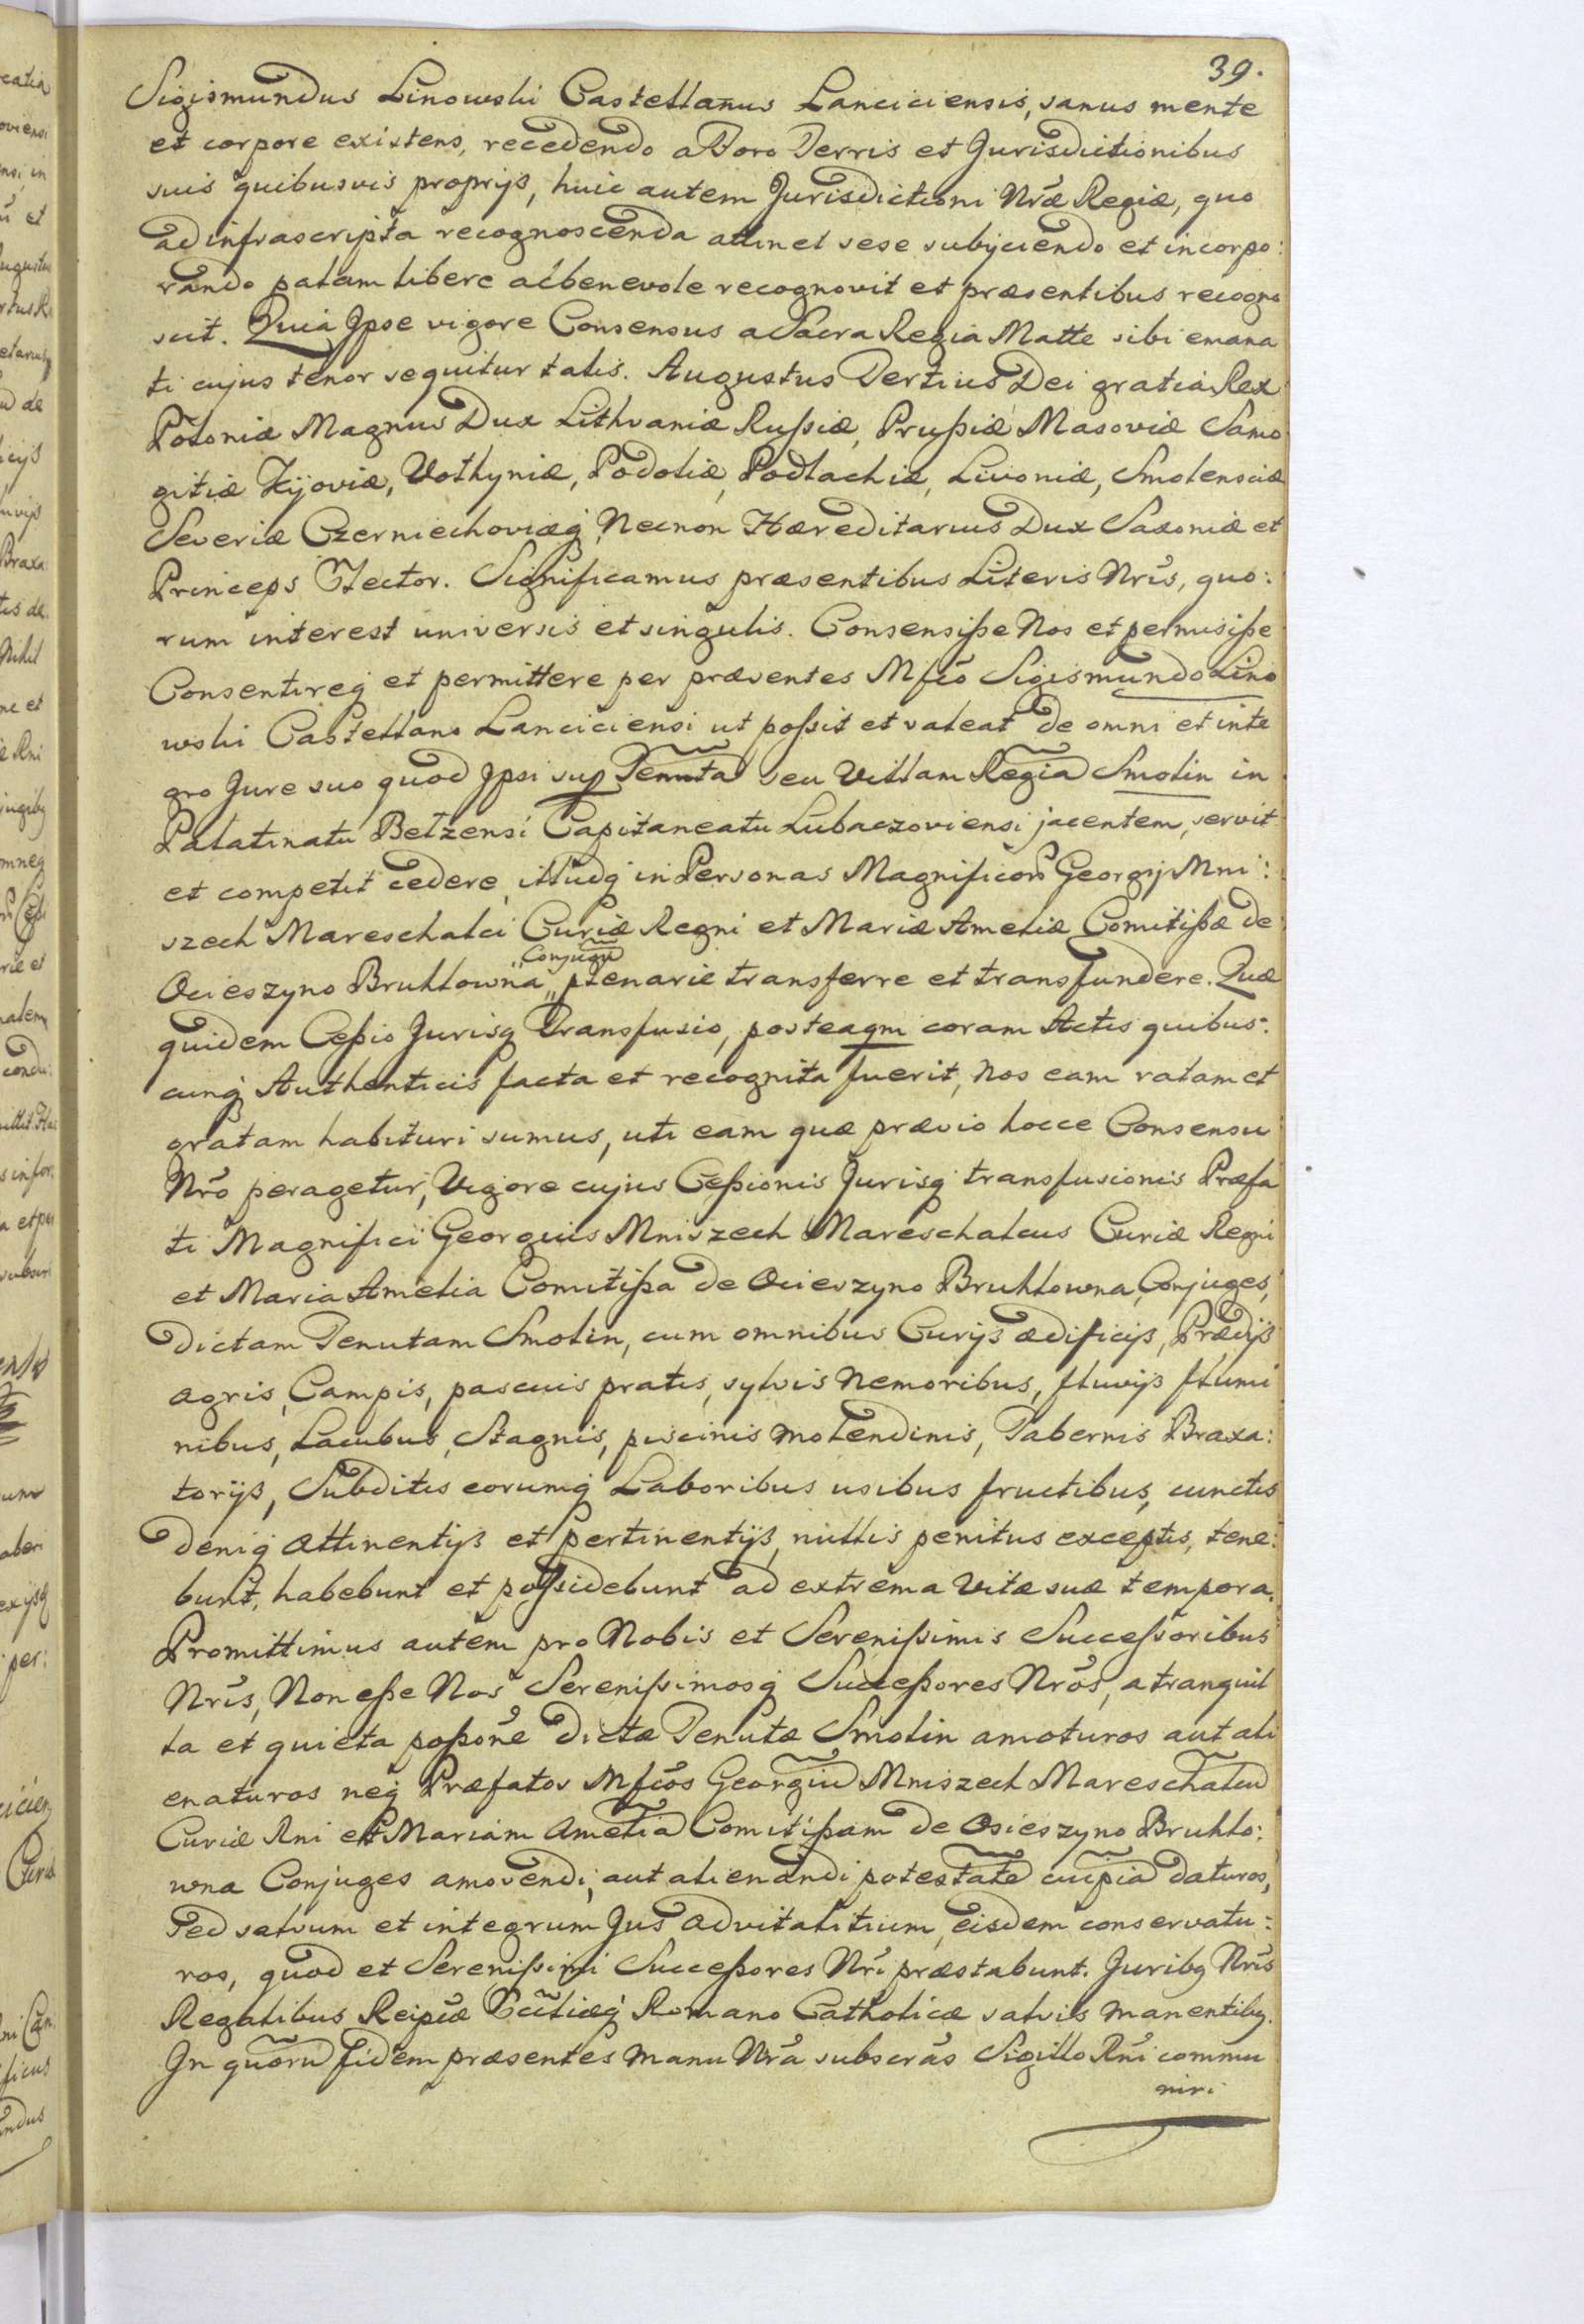 39.
Sigismundus Linowski Castellanus Lanciciensis, sanus mente
et corpore existens, recedendo a Foro Terris et Jurisdictionibus
suis quibusvis proprijs, huic autem Jurisdictioni Nrae Regiae, quo
ad infrascripta recognoscenda attinet sese subijciendo et incorpo:
rando palam libere acbenevole recognovit et praesentibus recogno
scit. Quia Ipse vigore Consensus a Sacra Regia Matte sibi emana
ti cujus tenor sequitur talis. Augustus Tertius Dei gratia Rex
Poloniae Magnus Dux Lithvaniae Rußiae, Prußiae Masoviae Samo
gitiae Kijoviae, Volhyniae, Podoliae, Podlachiae, Livoniae, Smolensciae
Severiae Czerniechoviaeq, Necnon Haereditarius Dux Saxoniae et
Princeps Elector. Significamus praesentibus Literis Nris, quo:
rum interest universis et singulis. Consensiße Nos et permisiße
Consentireq et permittere per praesentes Mfco Sigismundo Lino
wski Castellano Lanciciensi ut poßit et valeat de omni et inte
gro Jure suo quod Ipsi sup Tenuta seu Villam Regia Smolin in
Palatinatu Belzensi Capitaneatu Lubaczoviensi jacentem, servit
et competit cedere, illudq in Personas Magnificor Georgij Mni:
szech Mareschalci Curiae Regni et Mariae Ameliae Comitißae de
Ocieszyno Bruhlowna „Conjugu„ plenarie transferre et transfundere. Quae
quidem Ceßio Jurisq Transfusio, posteaqm coram Actis quibus:
cunq Authenticis facta et recognita fuerit, nos eam ratam et
gratam habituri sumus, uti eam quae praevio hocce Consensu
Nro peragetur, Vigore cujus Ceßionis Jurisq transfusionis Praefa
ti Magnifici Georgius Mniszech Mareschalcus Curiae Regni
et Maria Amelia Comitißa de Ocieszyno Bruhlowna, Conjuges,
dictam Tenutam Smolin, cum omnibus Curijs aedificijs, Praedijs
agris, Campis, pascuis pratis, sylvis Nemoribus, fluvijs flumi
nibus, Lacubus, Stagnis, piscinis molendinis, Tabernis Braxa:
torijs, Subditis eorumq Laboribus usibus fructibus, cunctis
deniq attinentijs et Pertinentijs, nullis penitus exceptis, tene:
bunt, habebunt et poßidebunt ad extrema Vitae suae tempora.
Promittimus autem pro Nobis et Serenißimis Succeßoribus
Nris, Non eße Nos Serenißimosq Succeßores Nros, a tranquil
la et quieta poßone dictae Tenutae Smolin amoturos aut ali
enaturos neq Praefatos Mfcos Georgiu Mniszech Mareschalcu
Curiae Rni et Mariam Amelia Comitißam de Osieszyno Bruhlo:
wna Conjuges amovendi, aut alienandi potestate cuipia daturos,
Sed salvum et integrum Jus advitalitium, eisdem conservatu:
ros, quod et Serenißimi Succeßores Nri praestabunt. Juribq Nris
Regalibus Reipcae Eccliaeq Romano Catholicae salvis manentibq.
In quoru fidem praesentes manu Nra subscras Sigillo Rni commu
niri